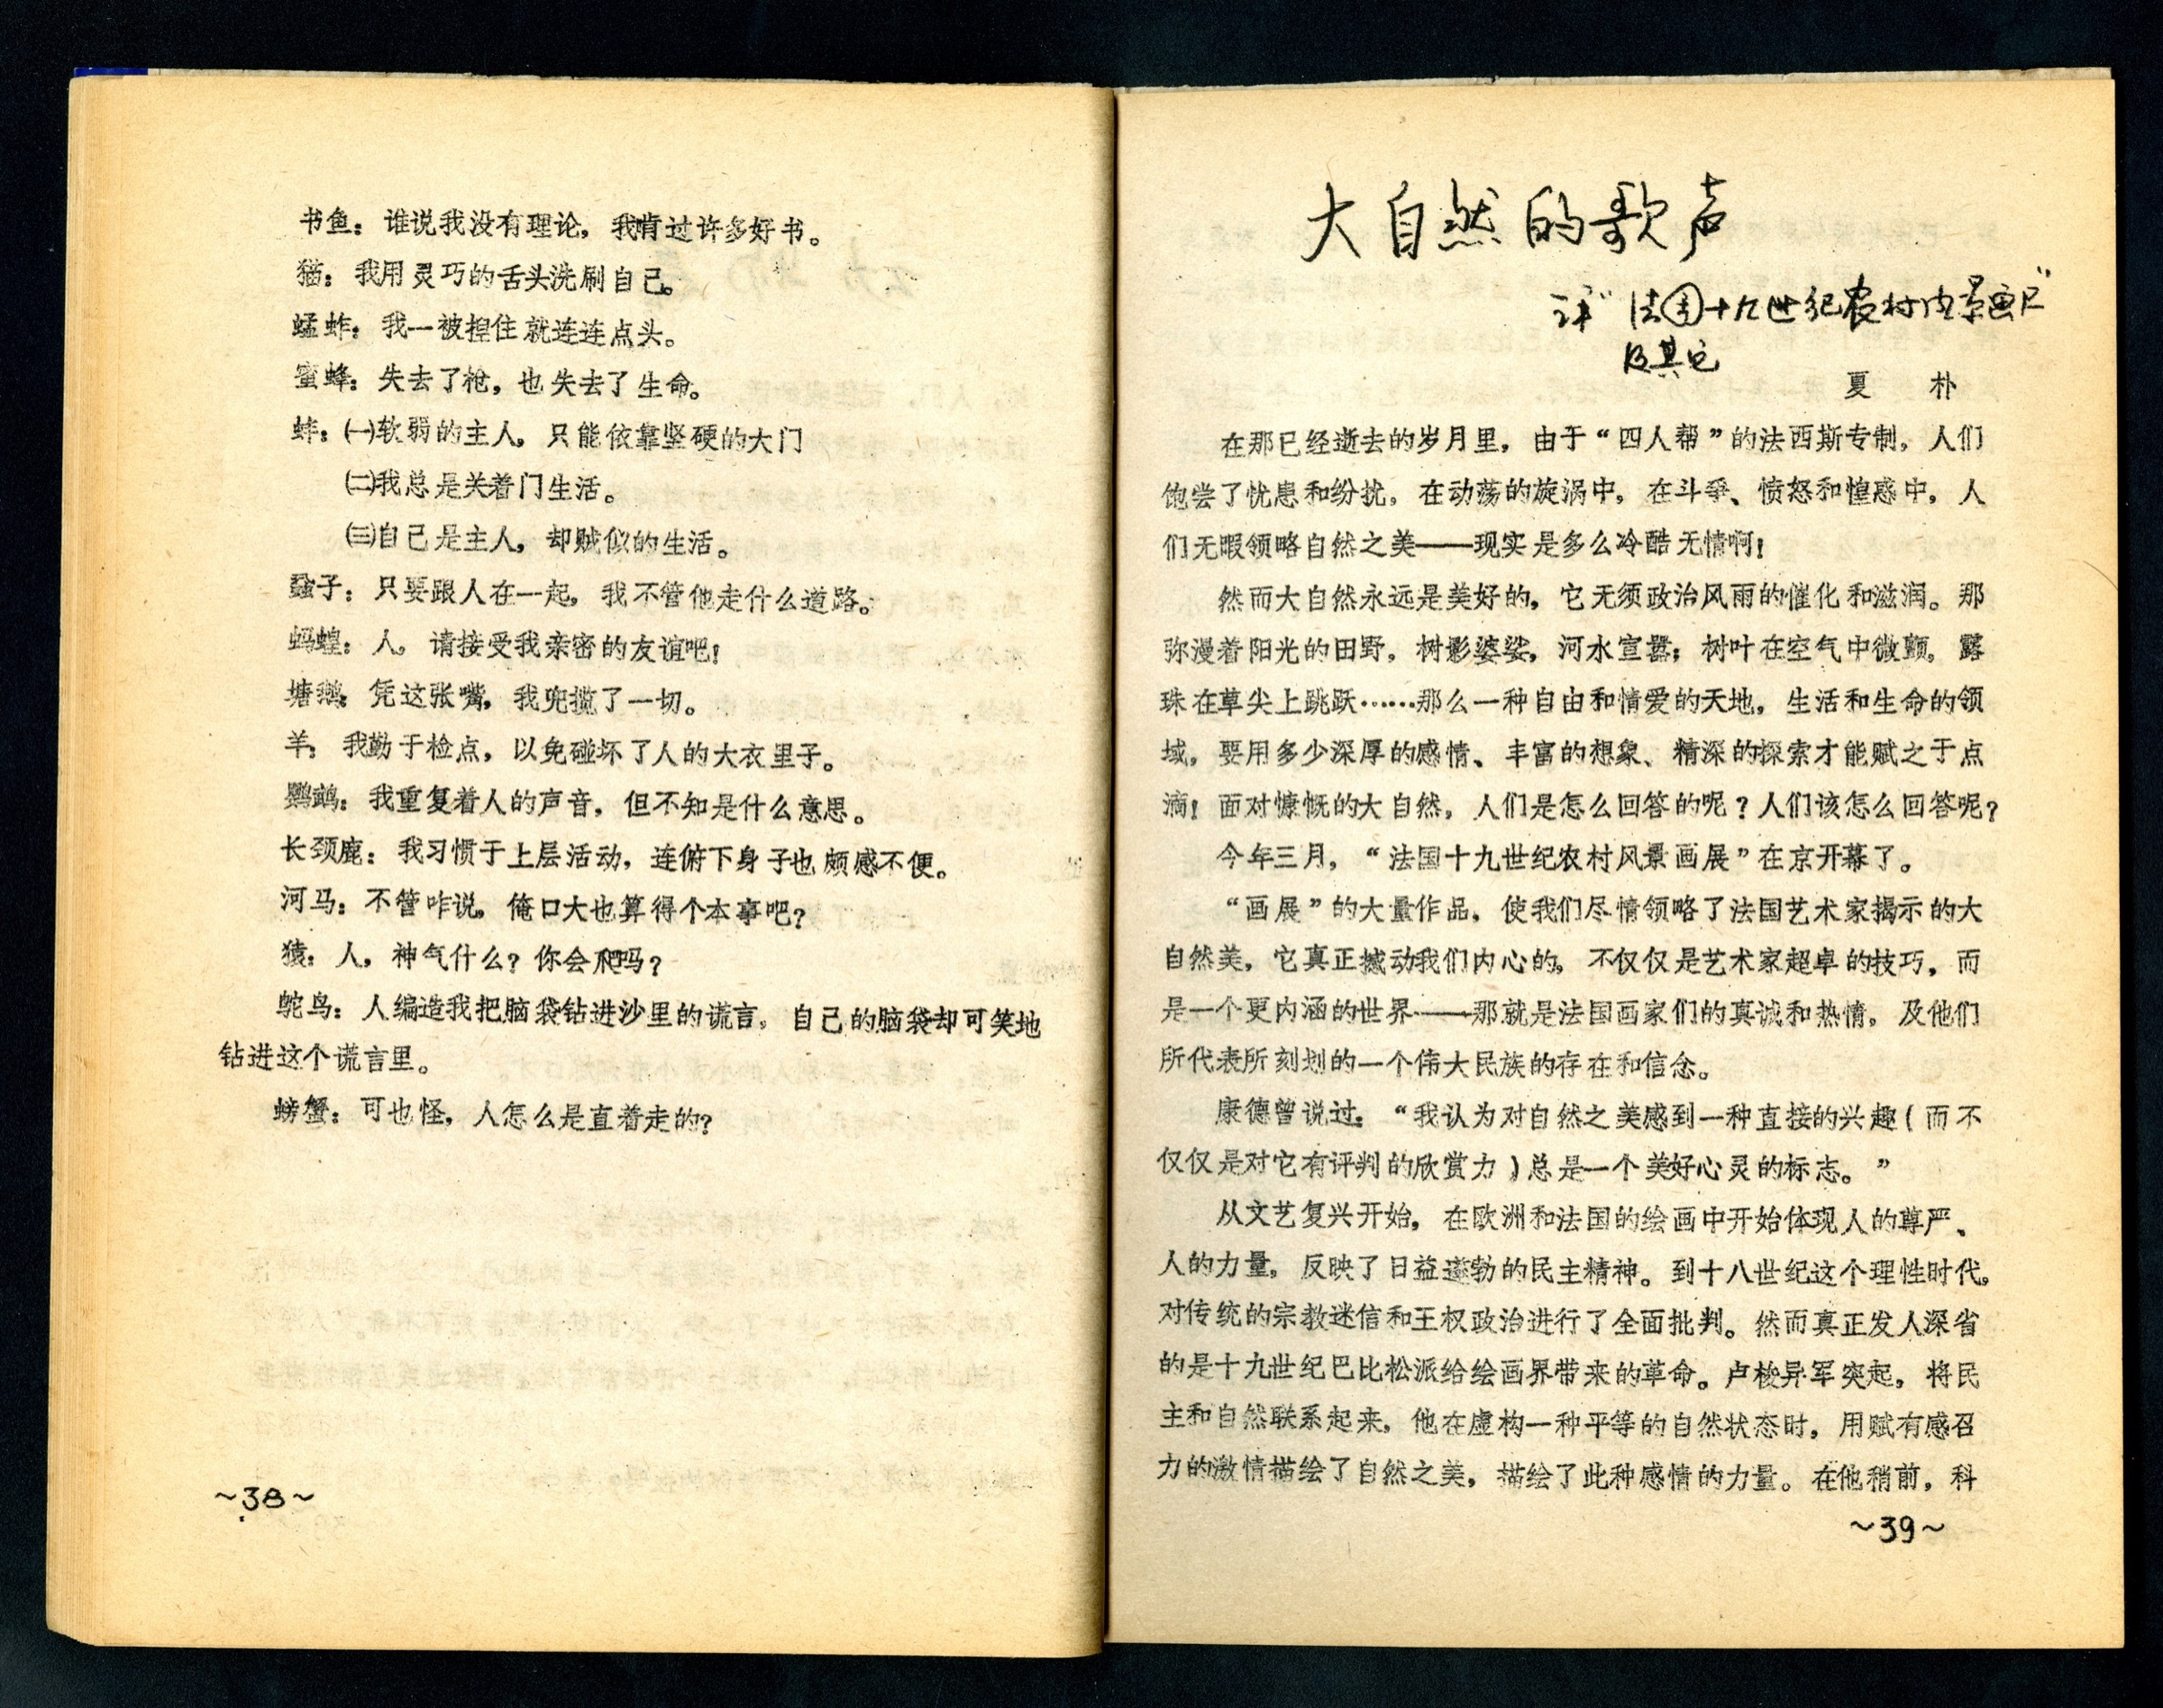 书鱼：谁说我没有理论，我肯过许多好书。
猫：我用灵巧的舌头洗刷自己。
蜢蚱：我一被捏住就连连点头。
蜜蜂：失去了枪，也失去了生命。
蚌：㈠软弱的主人，只能依靠坚硬的大门
㈡我总是关着门生活。
㈢自己是主人，却贼似的生活。
虱子：只要跟人在一起，我不管他走什么道路。
蚂蝗：人，请接受我亲密的友谊吧！
塘鹅：凭这张嘴，我兜揽了一切。
羊：我勤于检点，以免碰坏了人的大衣里子。
鹦鹉：我重复着人的声音，但不知是什么意思。
长颈鹿：我习惯于上层活动，连俯下身子也颇感不便。
河马：不管咋说，俺口大也算得个本事吧？
猿：人，神气什么？你会爬吗？
鸵鸟：人编造我把脑袋钻进沙里的谎言，自己的脑袋却可笑地
钻进这个谎言里。
螃蟹：可也怪，人怎么是直着走的？
～38～
大自然的歌声
评“法国十九世纪农村风景画展”
及其它
夏　朴
在那已经逝去的岁月里，由于“四人帮”的法西斯专制，人们
饱尝了忧患和纷扰，在动荡的旋涡中，在斗争、愤怒和惶惑中，人
们无暇领略自然之美——现实是多么冷酷无情啊！
然而大自然永远是美好的，它无须政治风雨的催化和滋润。那
弥漫着阳光的田野，树影婆娑，河水宣嚣；树叶在空气中微颤，露
珠在草尖上跳跃……那么一种自由和情爱的天地，生活和生命的领
域，要用多少深厚的感情、丰富的想象、精深的探索才能赋之于点
滴！面对慷慨的大自然，人们是怎么回答的呢？人们该怎么回答呢？
今年三月，“法国十九世纪农村风景画展”在京开幕了。
“画展”的大量作品，使我们尽情领略了法国艺术家揭示的大
自然美，它真正撼动我们内心的，不仅仅是艺术家超卓的技巧，而
是一个更内涵的世界——那就是法国画家们的真诚和热情，及他们
所代表所刻划的一个伟大民族的存在和信念。
康德曾说过：“我认为对自然之美感到一种直接的兴趣（而不
仅仅是对它有评判的欣赏力）总是一个美好心灵的标志。”
从文艺复兴开始，在欧洲和法国的绘画中开始体现人的尊严、
人的力量，反映了日益蓬勃的民主精神。到十八世纪这个理性时代，
对传统的宗教迷信和王权政治进行了全面批判。然而真正发人深省
的是十九世纪巴比松派给绘画界带来的革命。卢梭异军突起，将民
主和自然联系起来，他在虚构一种平等的自然状态时，用赋有感召
力的激情描绘了自然之美，描绘了此种感情的力量。在他稍前，科
～39～